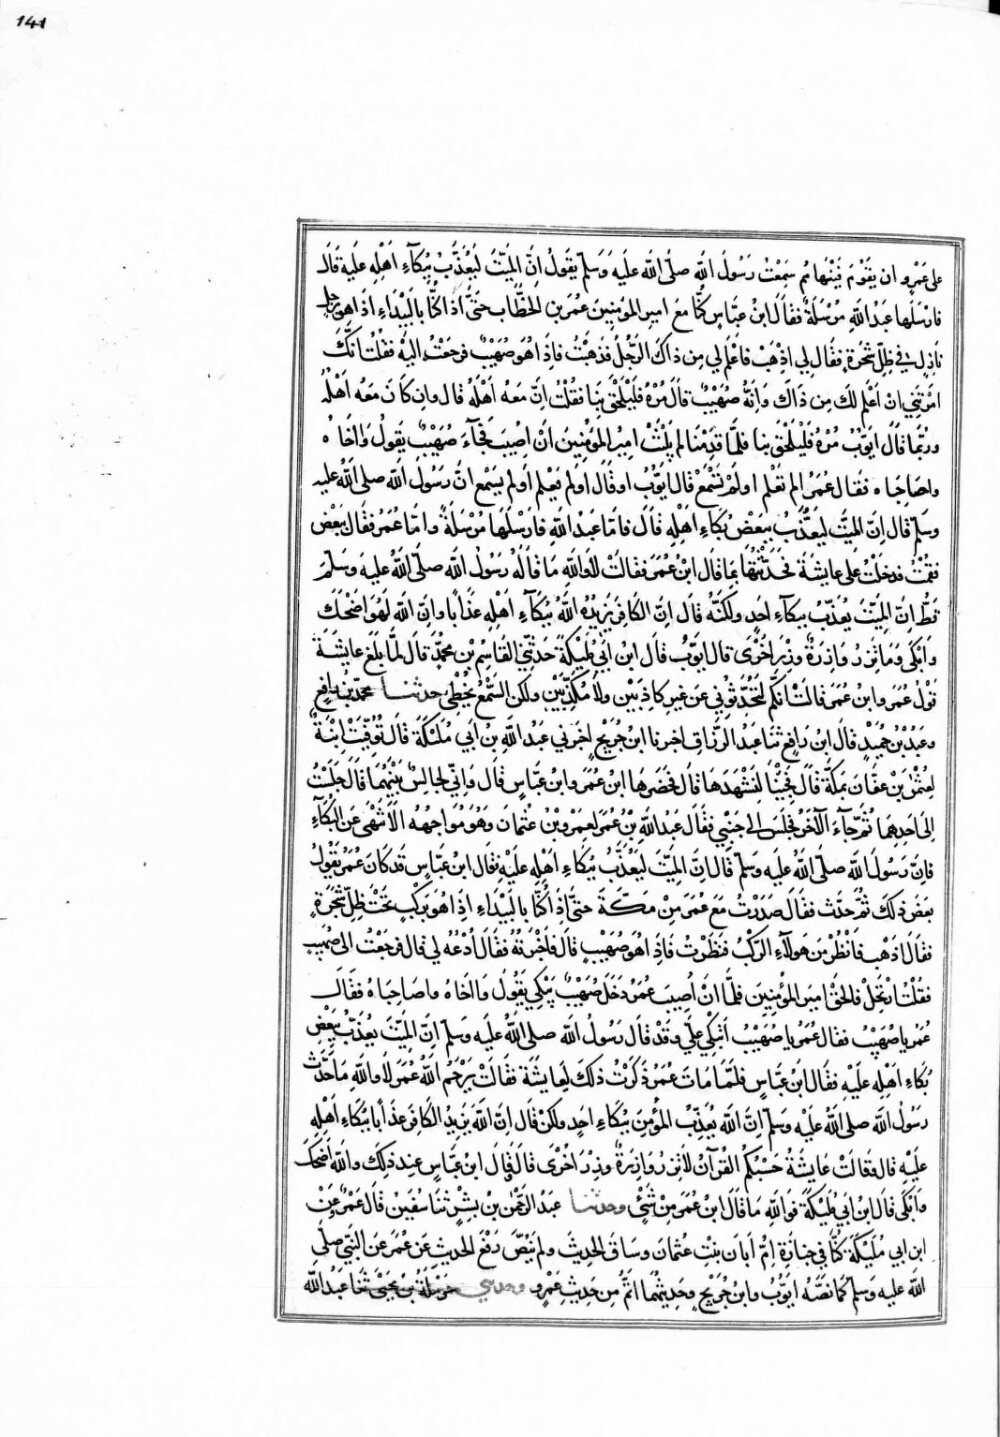 141
على عمرو ان يقوم فينهاهم سمعت رسول الله صلى الله عليه وسلم يقول ان الميت ليعذب ببكاء اهله عليه قال
فارسلها عبد الله مرسلة فقال ابن عباس كنا مع امير المؤمنين عمر بن الخطاب حتى اذا كنا بالبيداء اذ اهو برجل
نازل في ظل شجرة فقال لي اذهب فاعلم لي من ذاك الرجل فذهبت فاذا هو صهيب فرجعت اليه فقلت انك
امرتني ان اعلم لك من ذاك وانه صهيب قال مره فليلحق بنا فقلت ان معه اهله قال وان كان معه اهله
وربما قال ايوب مره فليلحق بنا فلما قدمنا لم يلبث امير المؤمنين ان اصيب فجاء صهيب يقول وااخاه
واصاحباه فقال عمر الم تعلم اولم تسمع قال ايوب او قال اولم تعلم اولم يسمع ان رسول الله صلى الله عليه
وسلم قال ان الميت ليعذب ببعض بكاء اهله قال فاما عبد الله فارسلها مرسلة واما عمر فقال ببعض
فقمت فدخلت على عايشة فحدثتها بما قال ابن عمر فقالت لا والله ما قاله رسول الله صلى الله عليه وسلم
قط ان الميت يعذب ببكاء احد ولكنه قال ان الكافر يزيده الله ببكاء اهله عذابا وان الله لهو اضحك
وابكى وما تزر وازرة وزر اخرى قال ايوب قال ابن ابي مليكة حدثني القاسم بن محمد قال لما بلغ عايشة
قول عمر وابن عمر قالت انكم لتحدثوني عن غير كاذبين ولا مكذبين ولكن السمع يخطئ حدثنا محمد بن رافع
وعبد بن حميد قال ابن رافع ثنا عبد الرزاق اخبرنا ابن جريج اخبرني عبد الله بن ابي مليكة قال توفيت ابنة
لعثمن بن عفان بمكة قال فجئنا لنشهدها قال فحضرها ابن عمر وابن عباس قال واني لجالس بينهما قال جلست
الى احدهما ثم جاء الآخر فجلس الى جنبي فقال عبد الله بن عمر لعمرو بن عثمان وهو مواجهه الا تنهى عن البكاء
فان رسول الله صلى الله عليه وسلم قال ان الميت ليعذب ببكاء اهله عليه فقال ابن عباس قد كان عمر يقول
بعض ذلك ثم حدث فقال صدرت مع عمر من مكة حتى اذا كنا بالبيداء اذا هو بركب تحت ظل شجرة
فقال اذهب فانظر من هولاء الركب فنظرت فاذا هو صهيب قال فاخبرته فقال ادعه لي قال فرجعت الى صهيب
فقلت ارتحل فالحق امير المؤمنين فلما ان اصيب عمر دخل صهيب يبكي يقول وااخاه واصاحباه فقال
عمر يا صهيب فقال عمر يا صهيب اتبكي علي وقد قال رسول الله صلى الله عليه وسلم ان الميت يعذب ببعض
بكاء اهله عليه فقال ابن عباس فلما مات عمر ذكرت ذلك لعايشة فقالت يرحم الله عمر لا والله ما حدث
رسول الله صلى الله عليه وسلم ان الله يعذب المؤمن ببكاء احد ولكن قال ان الله يزيد الكافر عذابا ببكاء اهله
عليه قال فقالت عايشة حسبكم القرآن لا تزر وازرة وزر اخرى قال قال ابن عباس عند ذلك والله اضحك
وابكى قال ابن ابي مليكة فو الله ما قال ابن عمر من شئ وحدثنا عبد الرحمن بن بشر ثنا سفين قال عمر عن
ابن ابي مليكة كنا في جنازة ام ابان بنت عثمان وساق الحديث ولم ينص رفع الحديث عن عمر عن النبي صلى
الله عليه وسلم كما نصه ايوب وابن جريج وحديثهما اتم من حديث عمرو وحدثني حرملة بن يحيى ثنا عبد الله